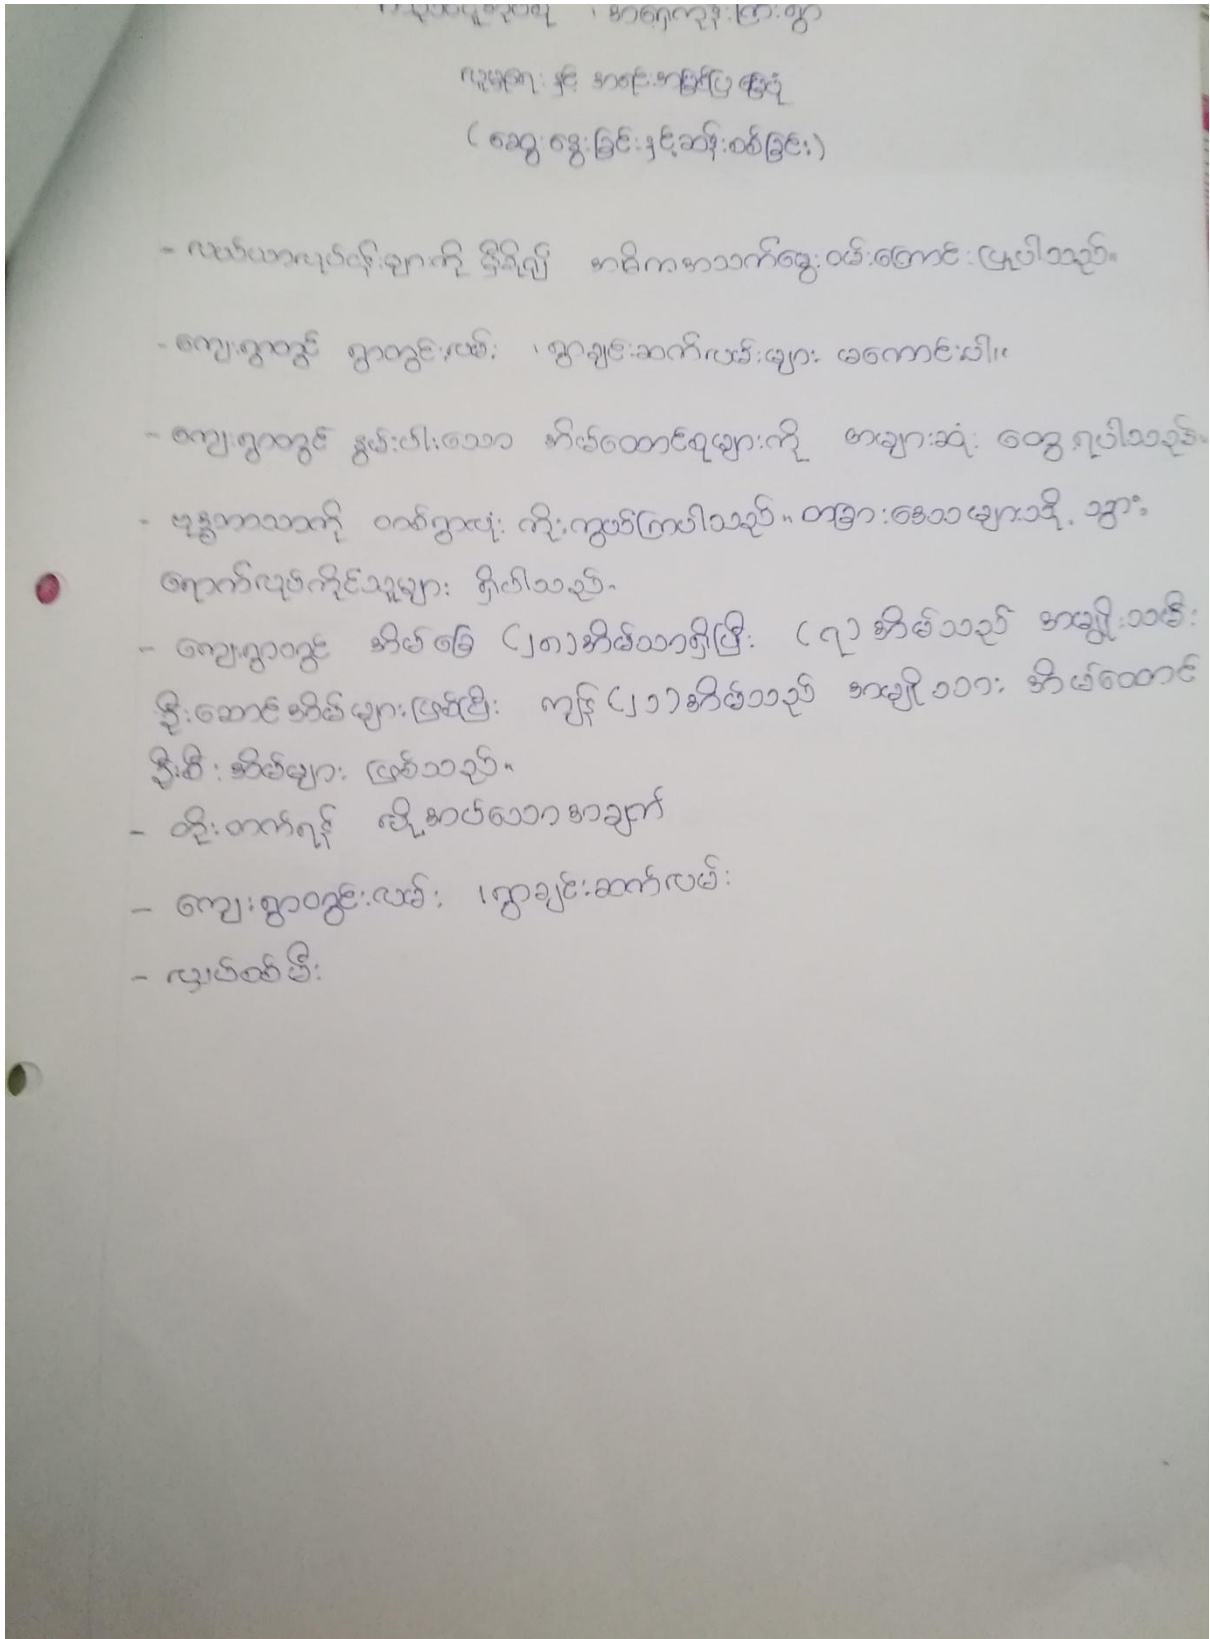 ၊ အရှေ့ကုန်းကြီးရွာ
လူမှုရေး နှင့် အရင်းအမြစ်ပြ မြေပုံ
( ဆွေးနွေးခြင်းနှင့်ဆန်းစစ်ခြင်း)
- လယ်ယာလုပ်ငန်းများကို မှီခို၍ အဓိကအသက်မွေးဝမ်းကြောင်းပြုပါသည်။
- ကျေးရွာတွင် ရွာတွင်းလမ်း ၊ ရွာချင်းဆက်လမ်းများ မကောင်းပါ။
- ကျေးရွာတွင် နွမ်းပါးသော အိမ်ထောင်စုများကို အများဆုံး တွေ့ရပါသည်။
- ဗုဒ္ဓဘာသာကို တစ်ရွာလုံး ကိုးကွယ်ကြပါသည်။ တခြားဒေသများသို့ သွား
ရောက်လုပ်ကိုင်သူများ ရှိပါသည်။
- ကျေးရွာတွင် အိမ်ခြေ (၂၈)အိမ်သာရှိပြီး (၇)အိမ်သည် အမျိုးသမီး
ဦးဆောင်အိမ်များဖြစ်ပြီး ကျန်(၂၁)အိမ်သည် အမျိုးသား အိမ်ထောင်
ဦးစီးအိမ်များ ဖြစ်သည်။
- တိုးတက်ရန် လိုအပ်သောအချက်
- ကျေးရွာတွင်းလမ်း ၊ ရွာချင်းဆက်လမ်း
- လျှပ်စစ်မီး